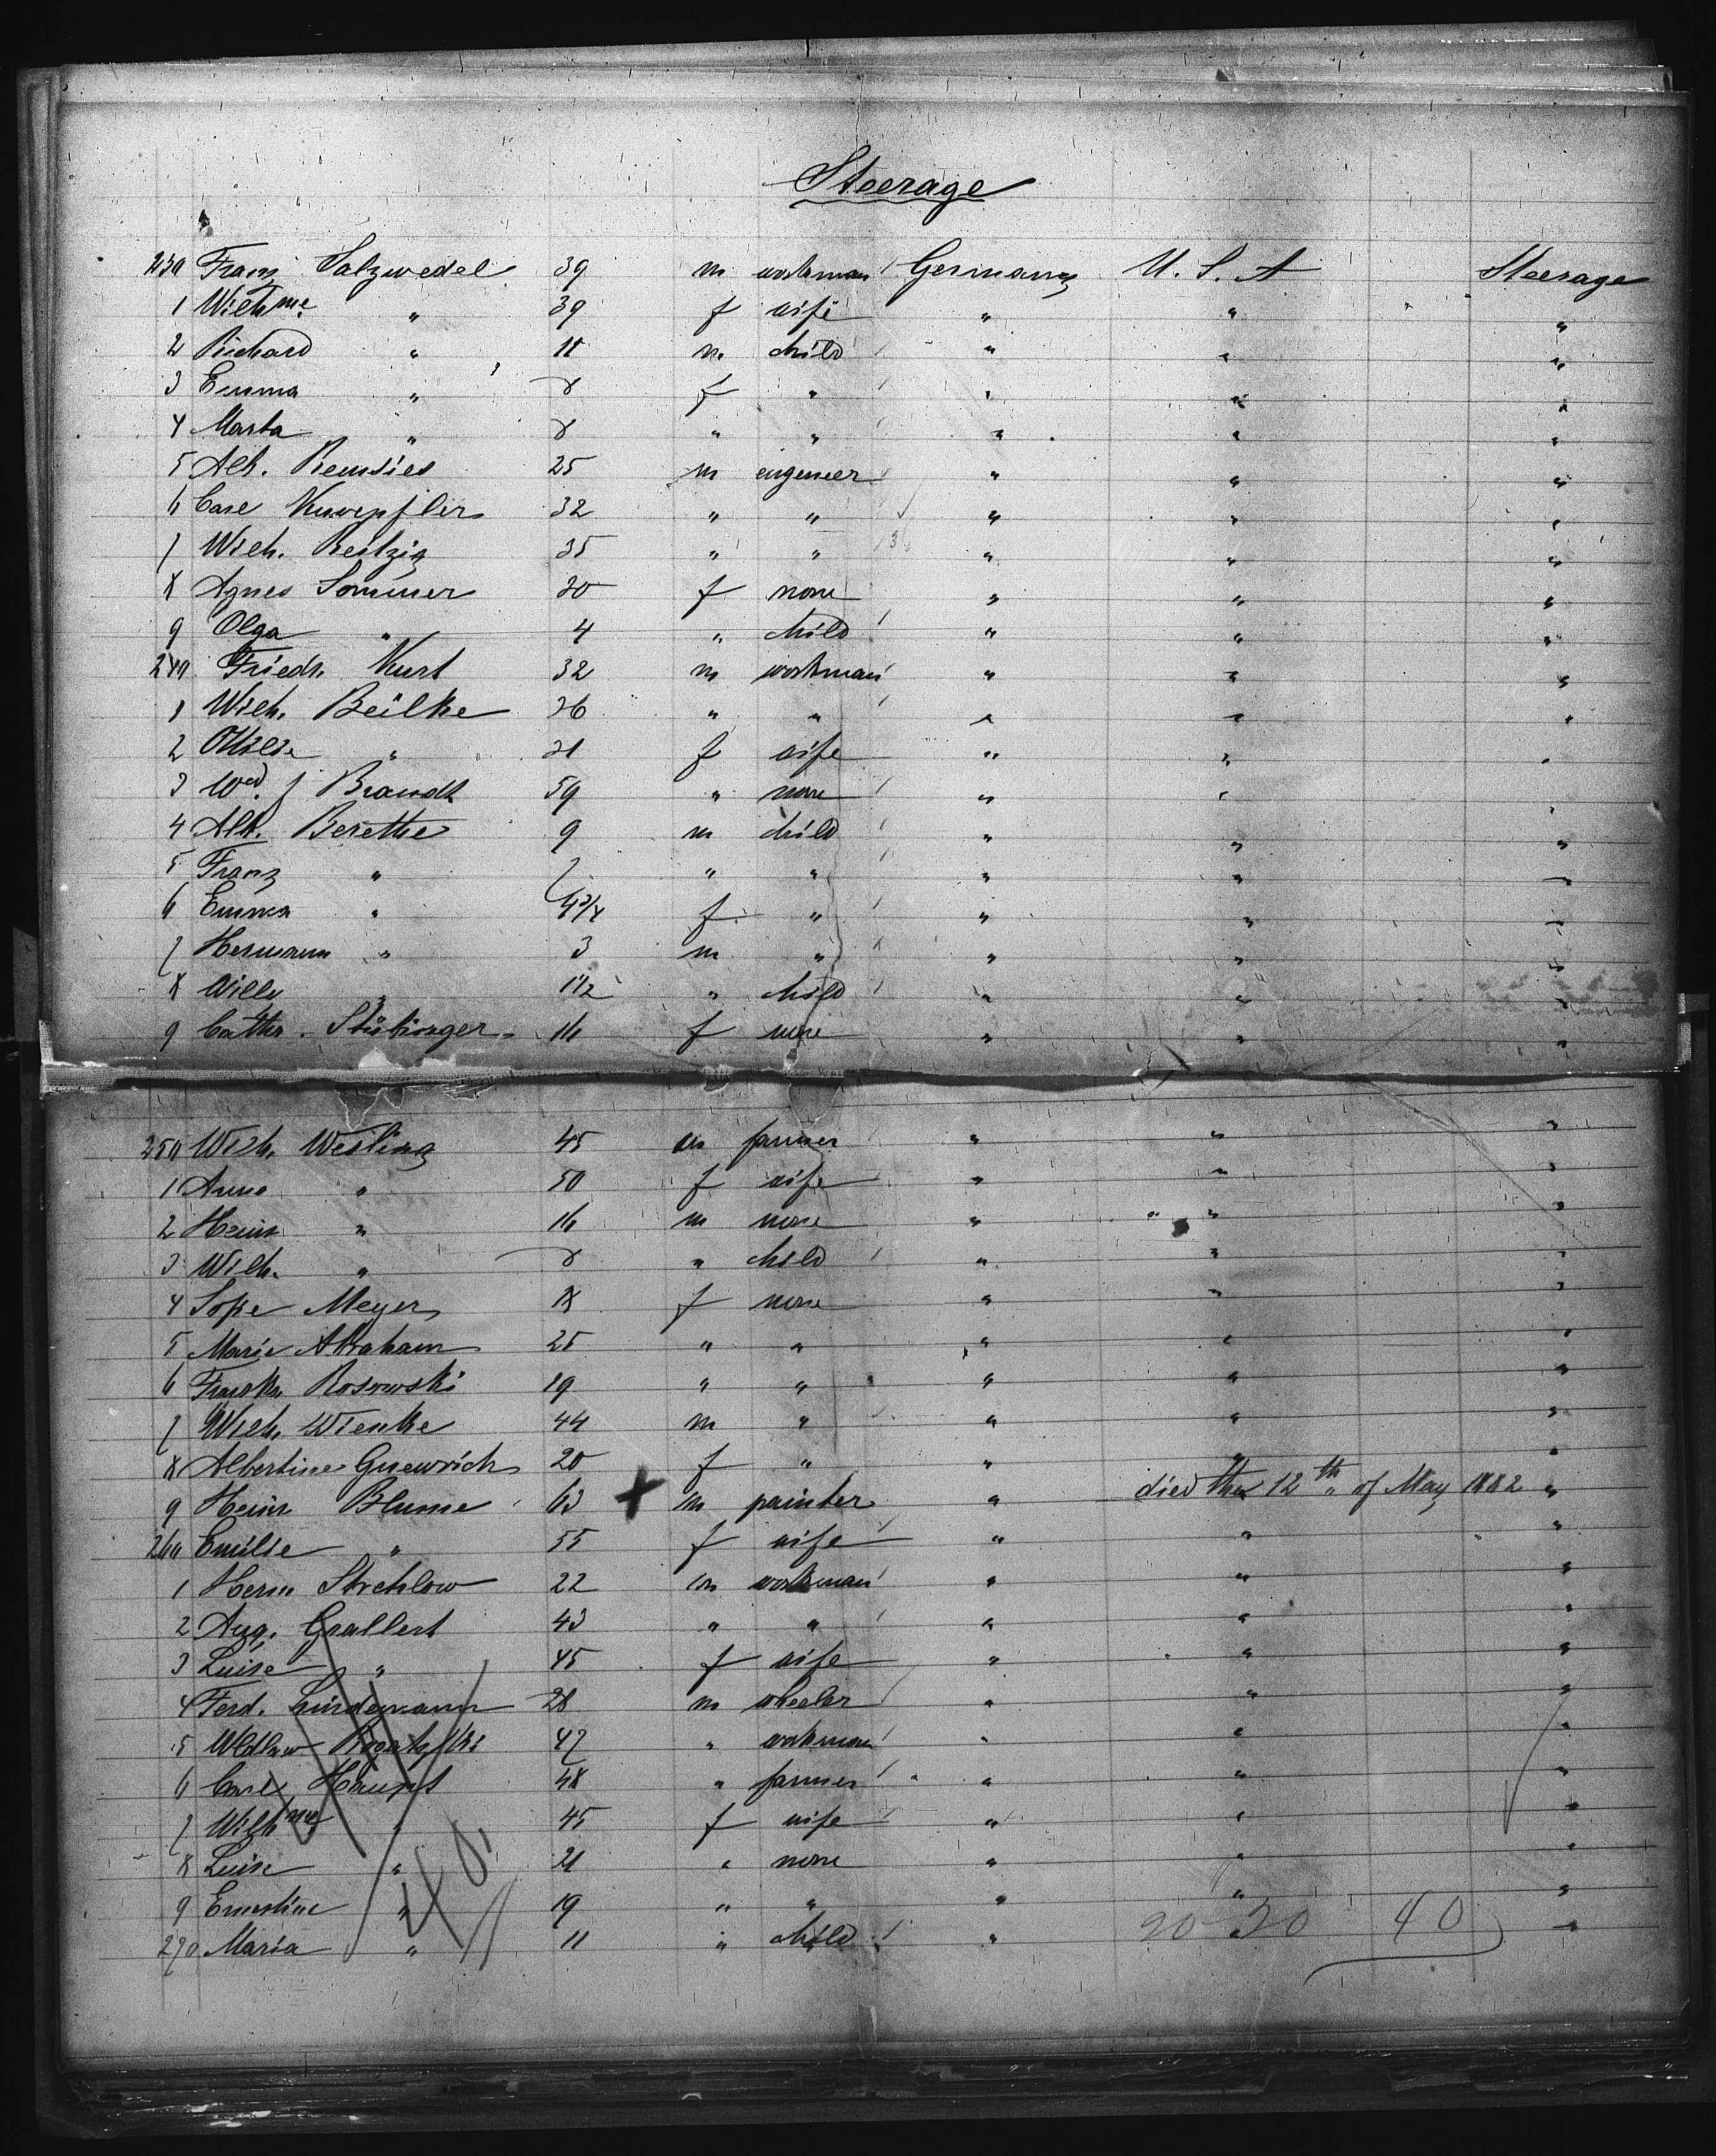 Steerage
230 Franz Salzwedel 39 m workman Germany U. S. A Steerage
1 Wilhme " 39 f wife " " "
2 Richard " 11 m child " " "
3 Emma " 8 f " " " "
4 Marta " 8 " " " " "
5 Alb. 25 m engeneer " " "
6 Carl 32 " " " " "
7 Wilh. Reitzig 35 " " " " "
8 Agnes Sommer 20 f none " " "
9 Olga " 4 " child " " "
240 Friedr. Kurt 32 m workman " " "
1 Wilh. Beilke 26 " " " " "
2 Ottilie " 21 f wife " " "
3 Wed. J Brandt 59 " none " "
4 Alb. Berethe 9 m child " " "
5 Franz " 7 " " " " "
6 Emma " 4 3/4 f " " " "
7 Hermann " 3 m " " " "
8 Willy " 1 1/2 " child " " "
9 Cathr. Stübinger 16 f none " " "
250 Wilh. Wesling 45 m farmer " " "
1 Anna " 50 f wife " " "
2 Heinr " 16 m none " " "
3 Wilh. " 8 " child " " "
4 Sofie Meyer 18 f none " " "
5 Marie Abraham 25 " " " " "
6 Rosowski 19 " " " " "
7 Wilh. Wienke 44 m " " " "
8 Albertine Gnewrich 20 f " " " "
9 Heinr Blume 63 m painter " died the 12th of May 1882 "
260 Emilie " 55 f wife " " "
1 Herm Strehlow 22 m workman " " "
2 Aug. Grallert 43 " " " " "
3 Luise " 45 f wife " " "
4 Ferd. Lindemann 28 m wheeler " " "
5 47 " workman " " "
6 Carl Haupt 48 " farmer " " "
7 Wilhme " 45 f wife " " "
8 Luise " 21 " none " " "
9 Ernestine " 19 " " " " "
270 Maria " 11 " child " "
20 20 40